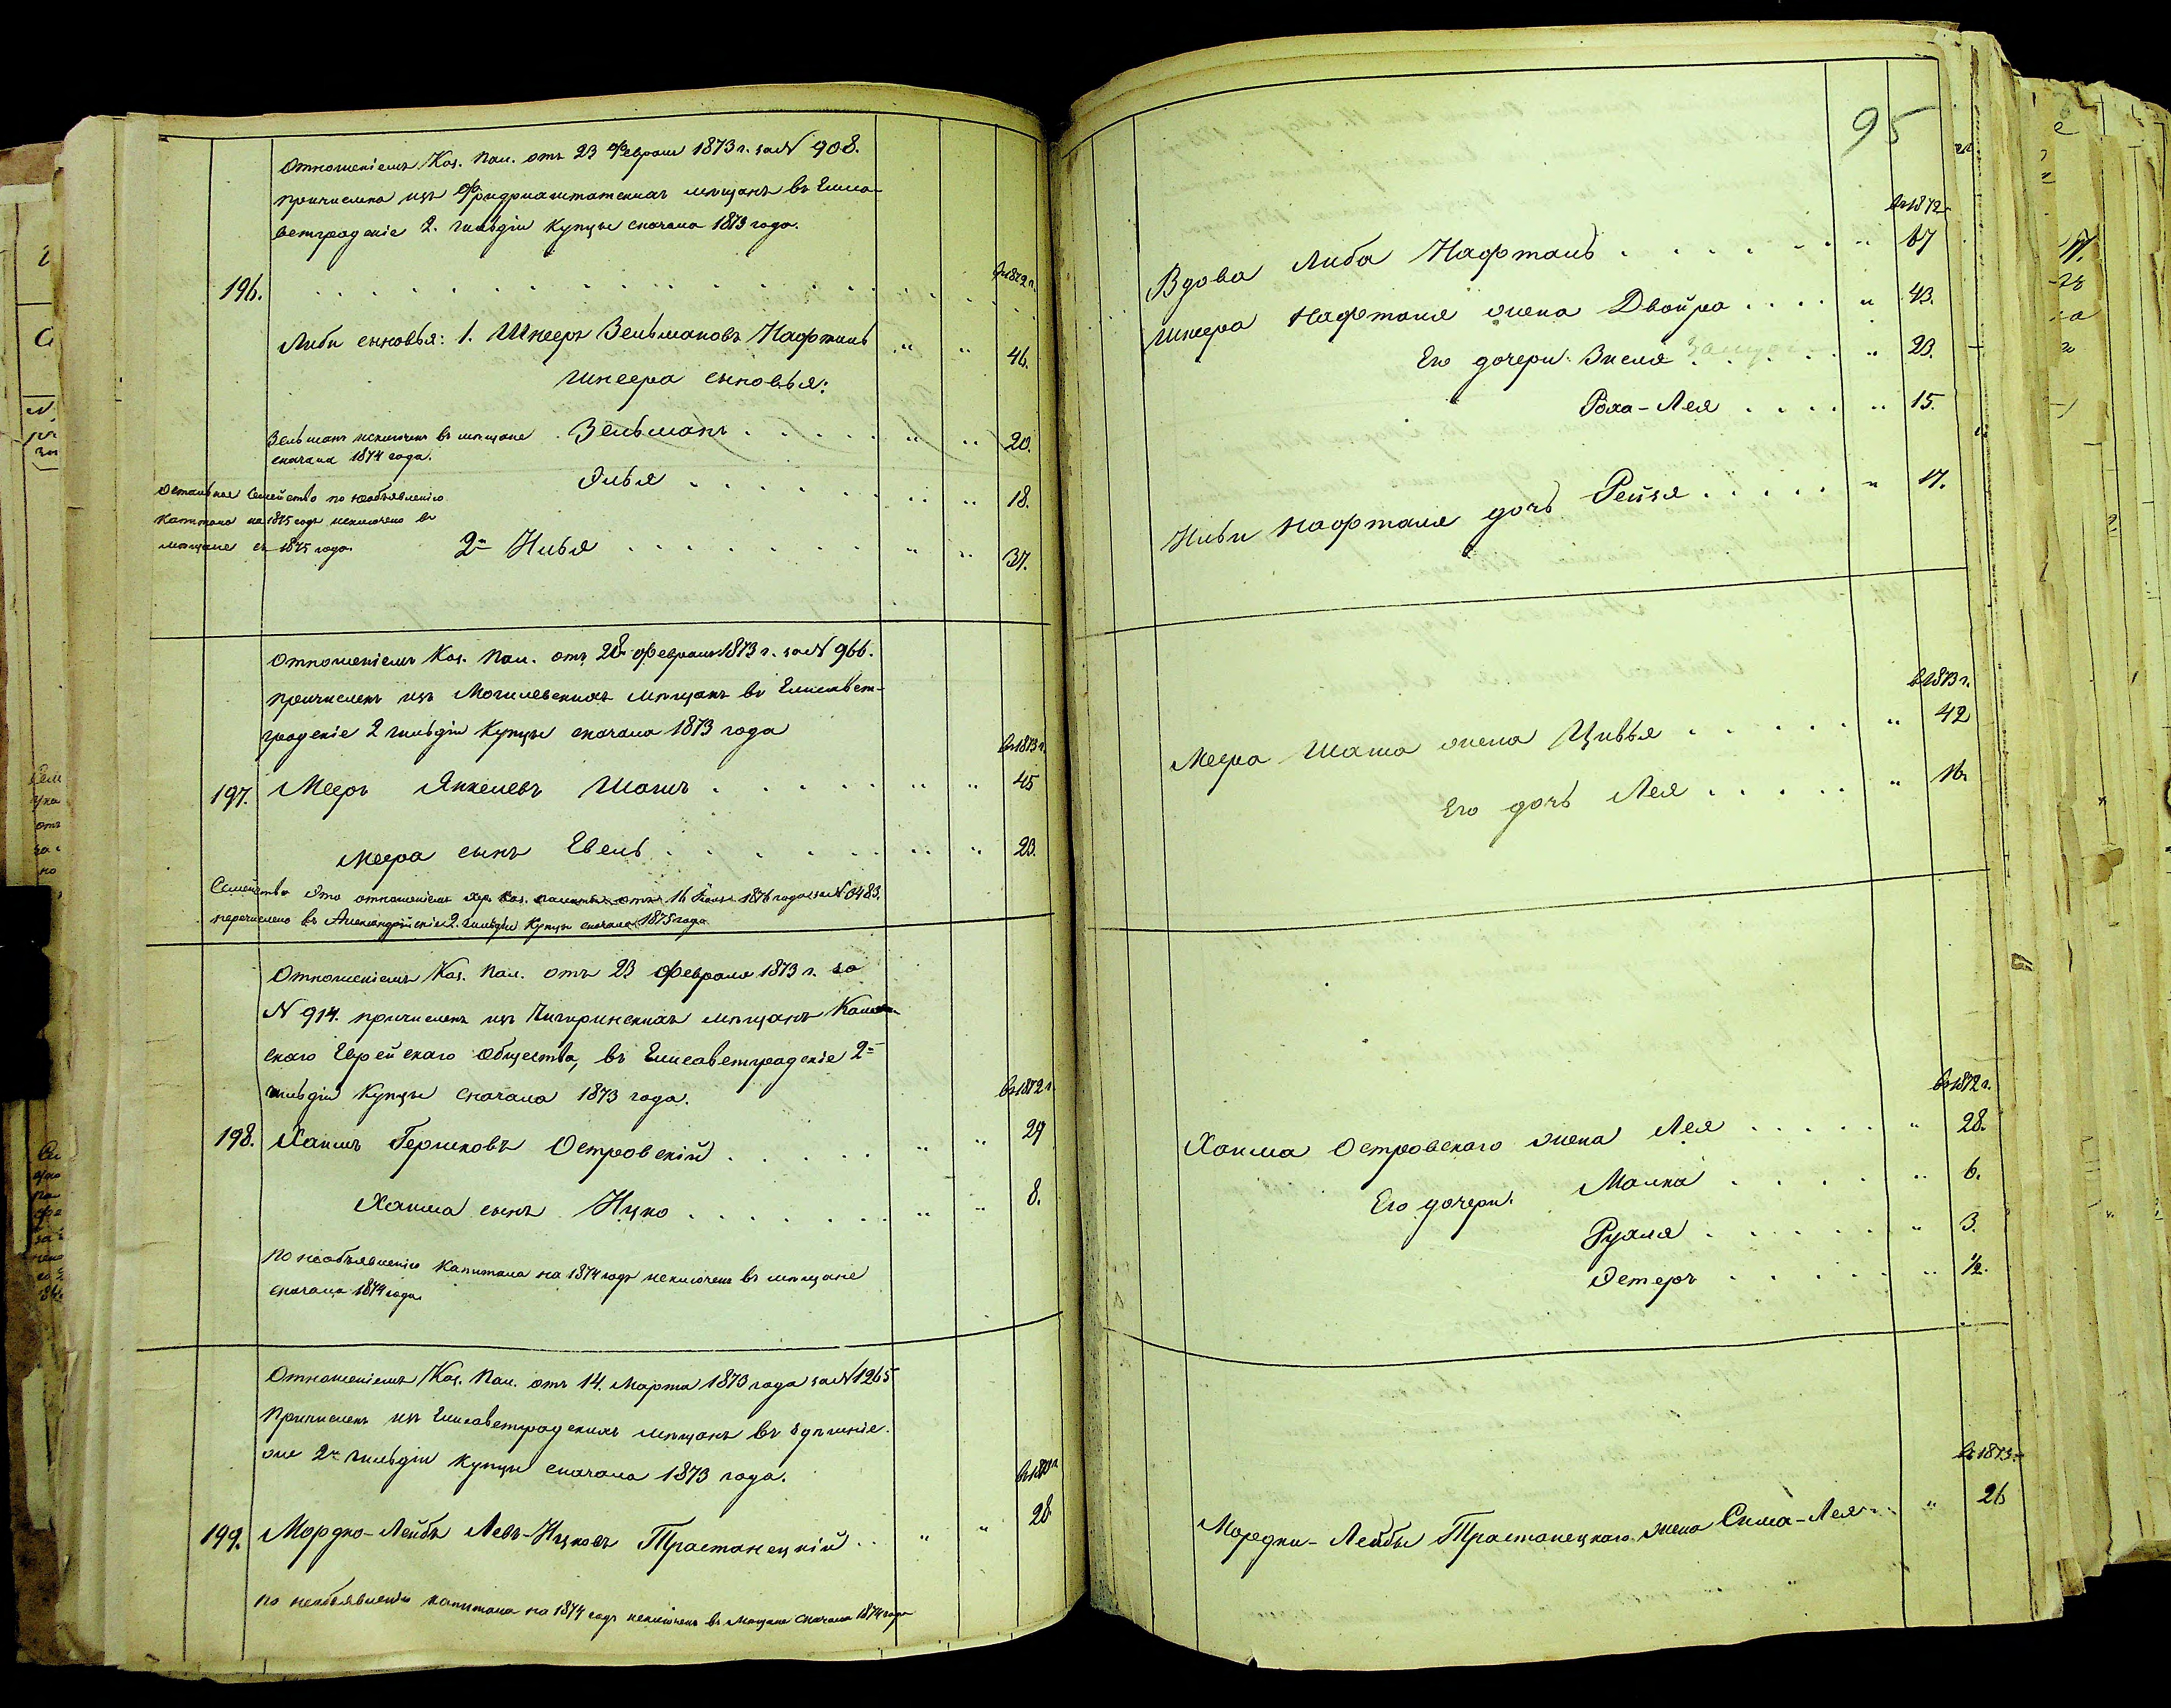 Отношеніемъ Каз. Пал. отъ 23 Февраля 1873 г. за N 908.
причислена изъ Фридрихштатскихъ мѣщанъ въ Елиса-
ветградскіе 2. гильдіи купцы сначала 1873 года.
въ 1872 г.
196.
Либы сыновья: 1. Шнееръ Зельмановъ Нафталь " " 46.
Шнеера сыновья:
Зельманъ исключенъ въ мѣщане
сначала 1874 года.
Зельманъ " " 20.
Остальное семейство по необъявленію
капитала на 1875 годъ исключено въ
мѣщане съ 1875 года.
Илья " " 18.
2й Хивья " " 37.
Отношеніемъ Каз. Пал. отъ 28 Февраля 1873 г. за N 966.
причисленъ изъ Могилевскихъ мѣщанъ въ Елисавет-
градскіе 2 гильдіи купцы сначала 1873 года
въ 1873 г.
197. Мееръ Янкелевъ Шашъ " " 45
Меера сынъ Евель " " 23.
Семейство это отношеніемъ Хер. Каз. палаты отъ 16 1876 года за N 3483.
перечислено въ Александрійскіе 2. гильдіи купцы сначала 1875 года
Отношеніемъ Каз. Пал. отъ 23 Февраля 1873 г. за
N 914. причисленъ изъ Чигиринскихъ мѣщанъ Камен-
скаго Еврейскаго общества, въ Елисаветградскіе 2й
гильдіи купцы сначала 1873 года.
въ 1872 г.
198. Хаимъ Гершковъ Островскій " " 29
Хаима сынъ Ицко " " 8.
По необъявленію капитала на 1874 годъ исключенъ въ мѣщане
сначала 1874 года.
Отношеніемъ Каз. Пал. отъ 14. Марта 1873 года за N 1265
причисленъ изъ Елисаветградскихъ мѣщанъ въ здѣшніе-
же 2й гильдіи купцы сначала 1873 года.
199. Мордко-Лейбъ Левъ-Ицковъ Трастанецкій " " 28
По необъявленію капитала на 1874 годъ исключенъ въ мѣщане сначала 1874 года
95
въ 1872
Вдова Либа Нафталь " 67
Шнеера Нафталя жена Двойра " 43.
Его дочери: Знеля " 23.
Роха-Лея " 15.
Хивьи Нафталя дочь Рейзя " 17.
въ 1873 г.
Меера Шаша жена Цивья " 42
Его дочь Лея " 16
въ 1872 г.
Хаима Островскаго жена Лея " 28.
Его дочери: Малка " 6.
Рухля " 3.
Эстеръ " 1/2.
въ 1873
Мордки-Лейбы Трастанецкаго жена Сима-Лея " 26